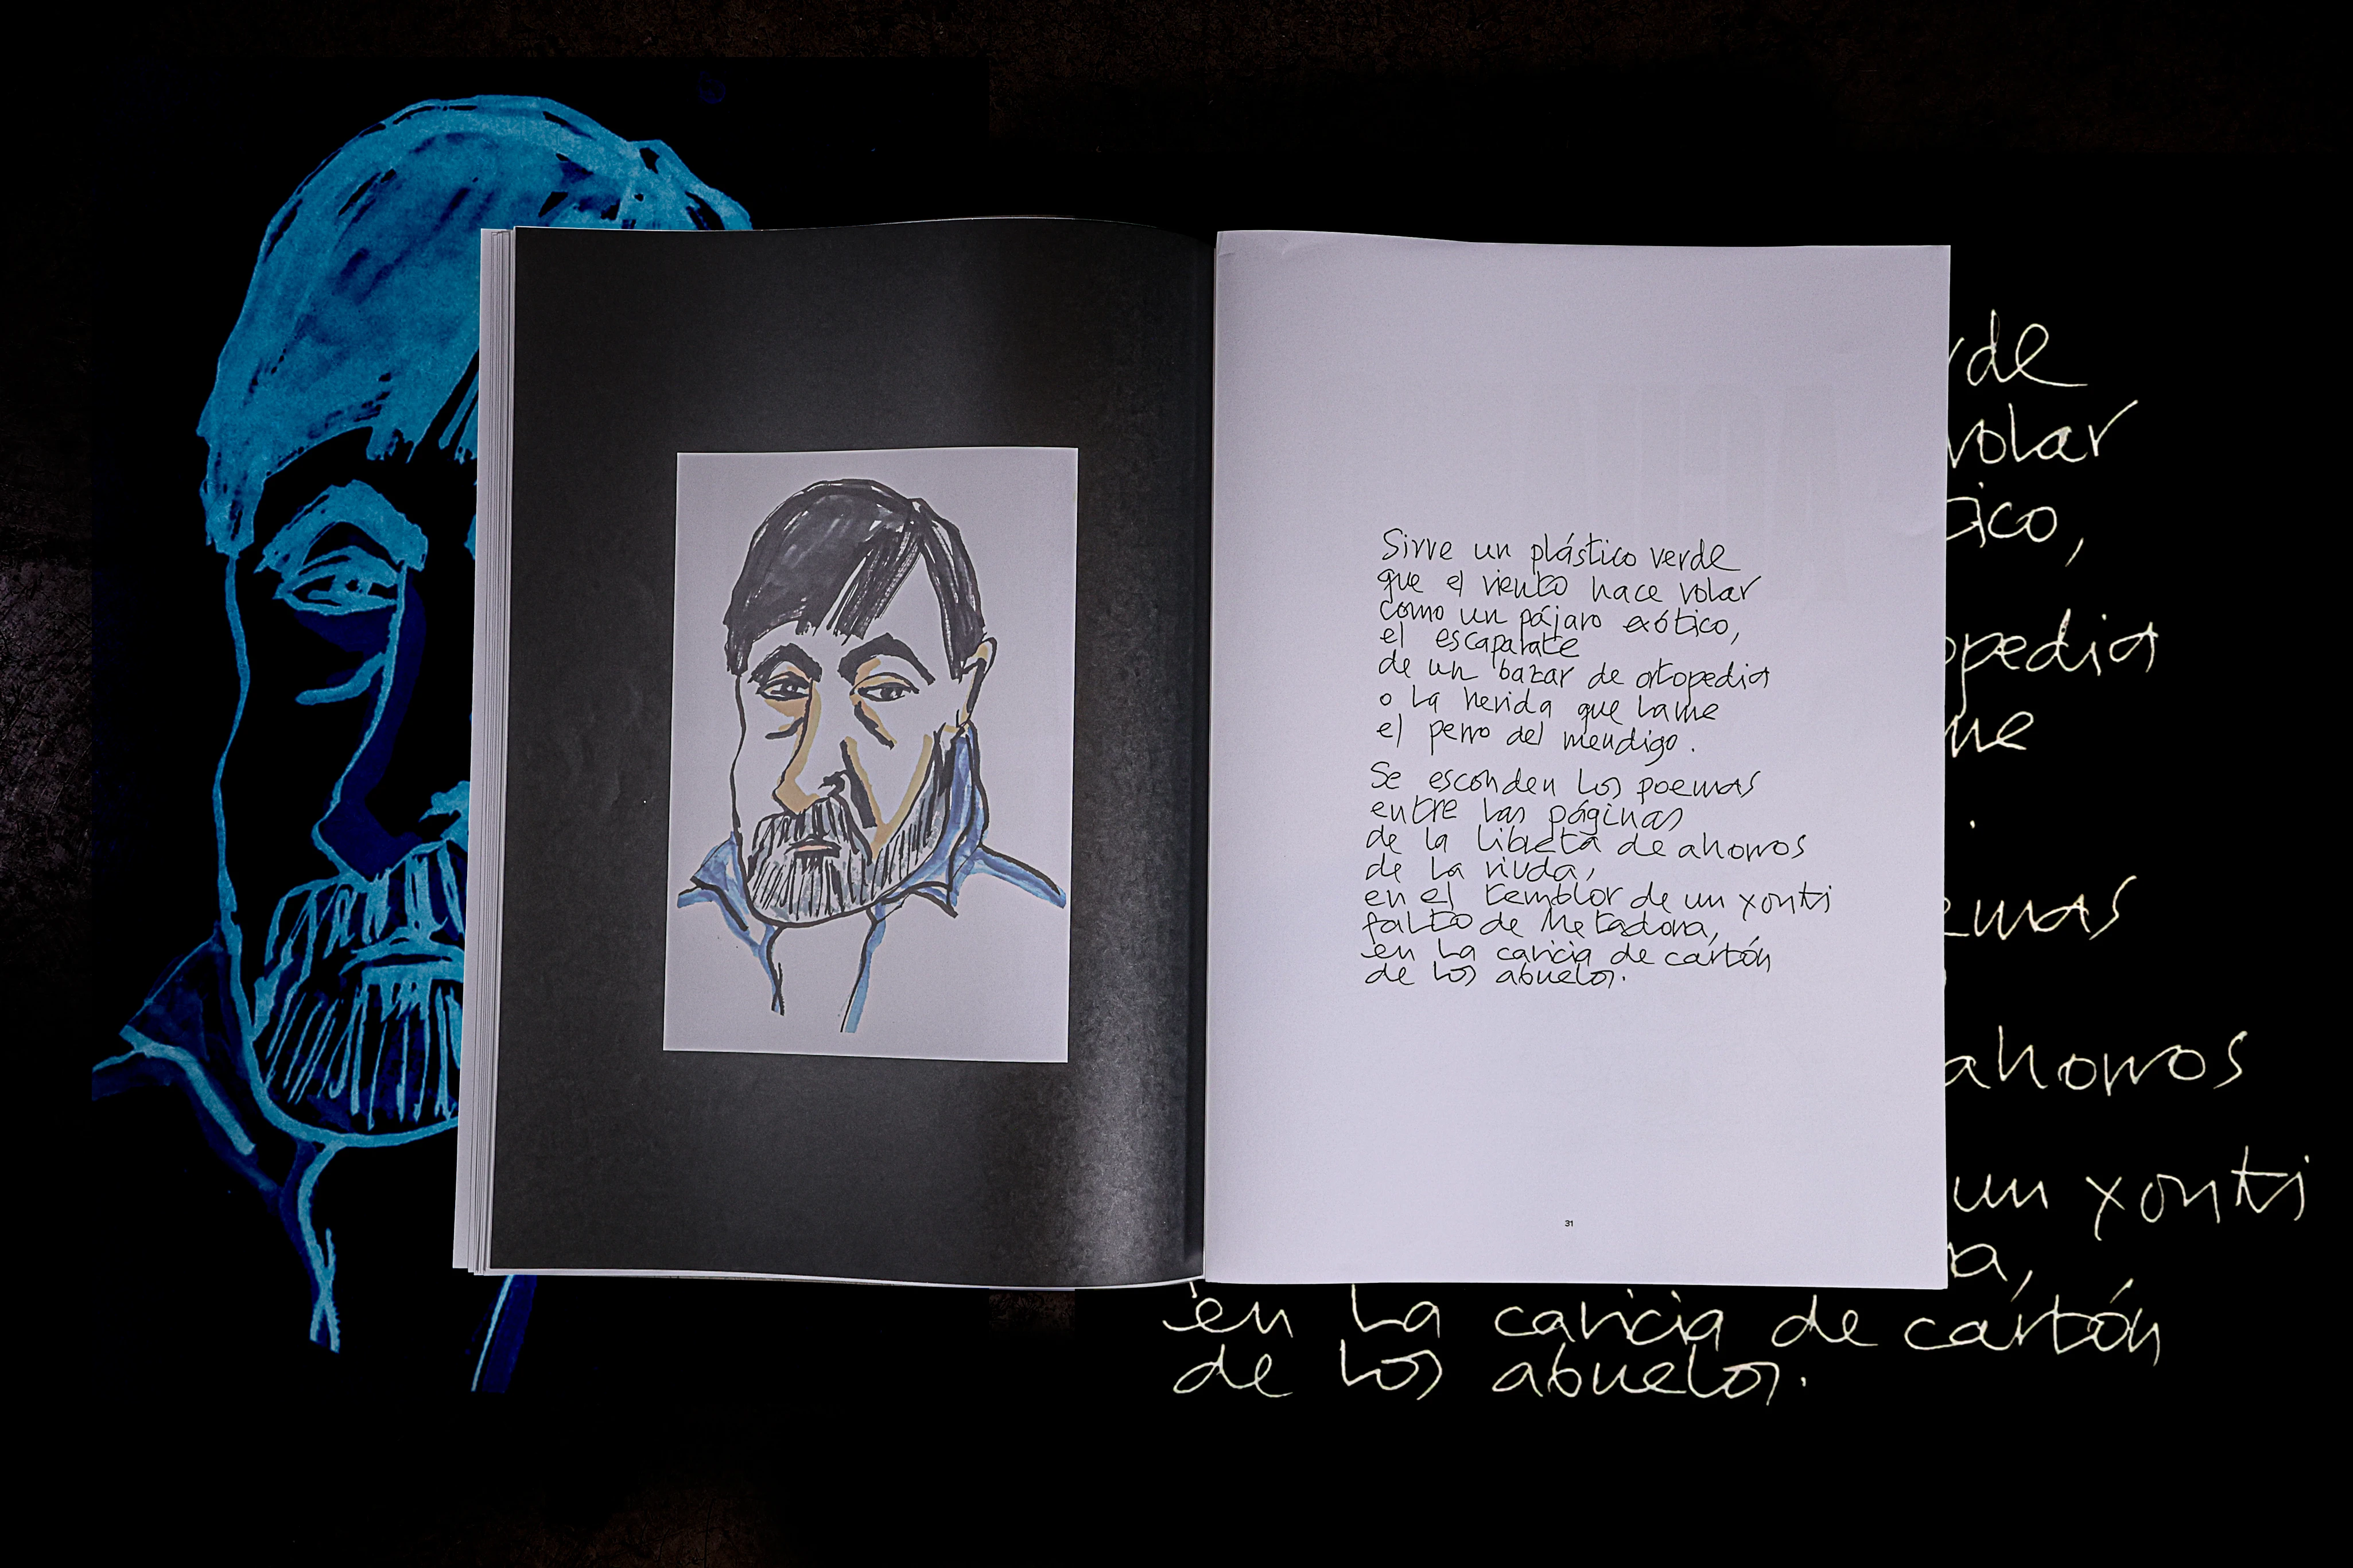 Sirve un plástico verde
que el viento hace volar
como un pájaro exótico,
el escaparate
de un bazar de ortopedia
o la herida que lame
el perro del mendigo.
Se esconden los poemas
entre las páginas
de la libreta de ahorros
de la viuda,
en el temblor de un yonki
falto de Metadona,
en la caricia de cartón
de los abuelos.
31
rde
volar
tico,
opedia
me
.
emas
ahorros
un yonki
a,
en la caricia de cartón
de los abuelos.